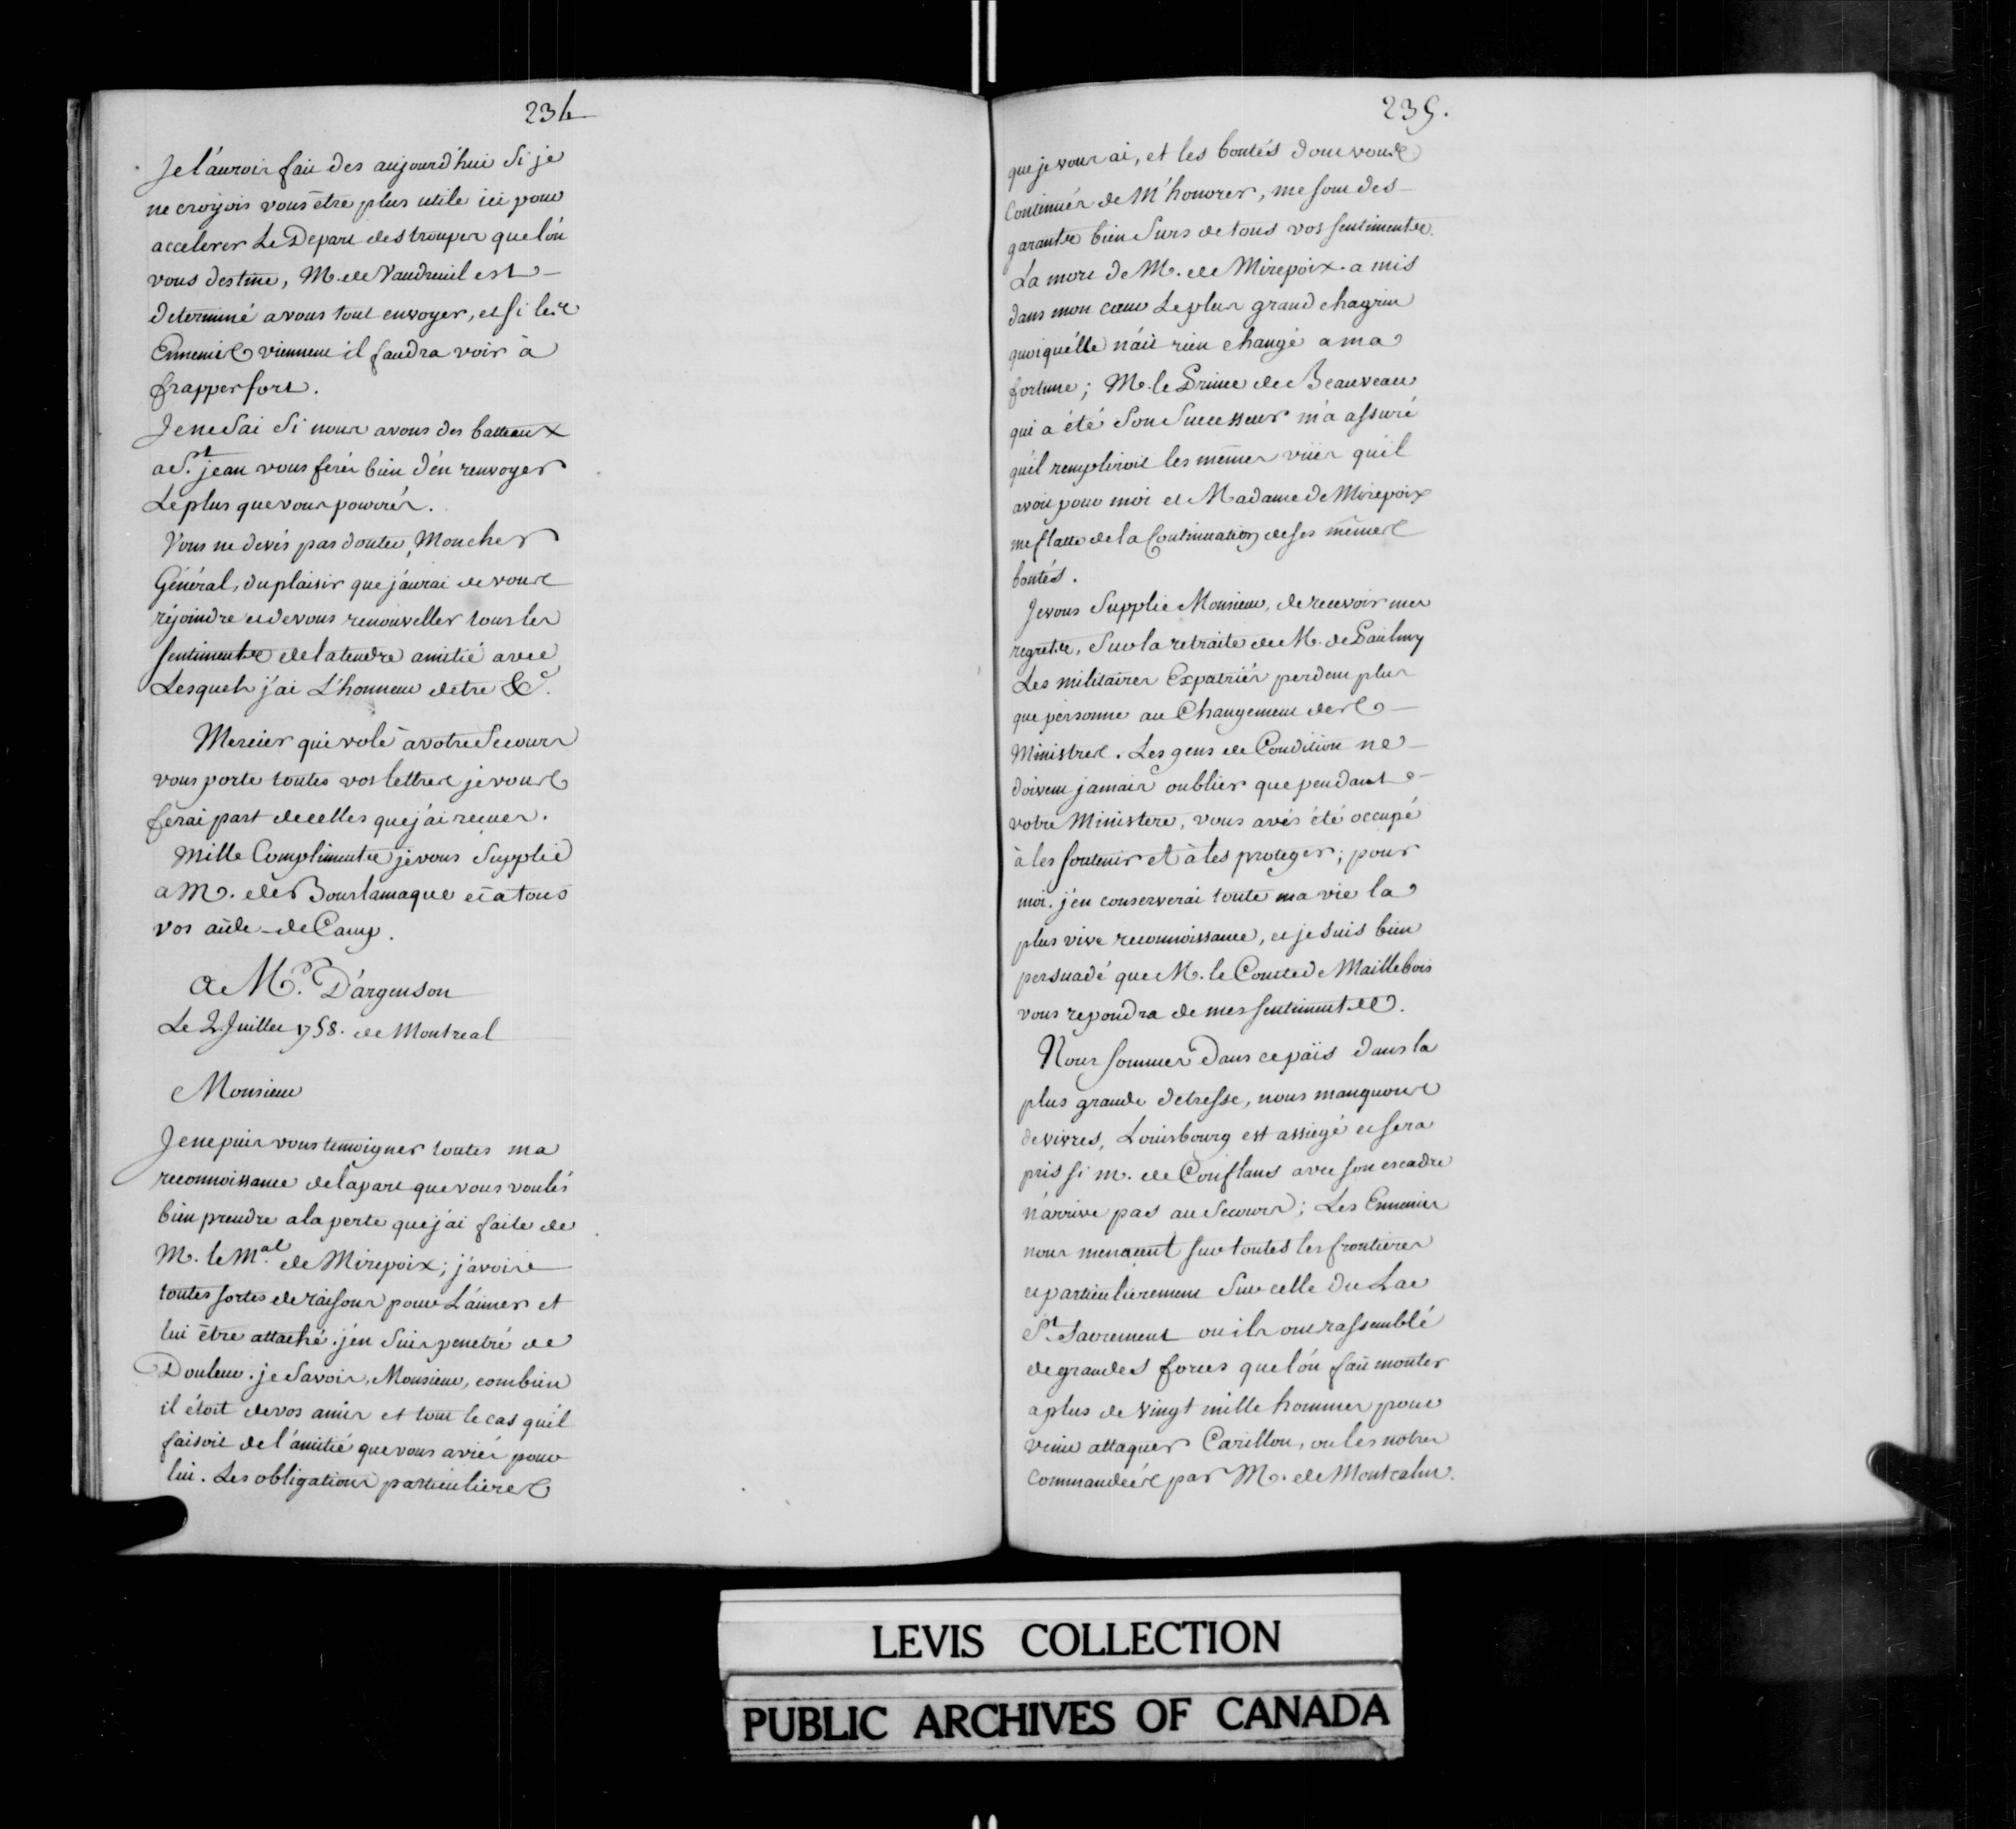 234
Je l'aurois fait des aujourd'hui Si je
ne croyois vous être plus utile ici pour
accelerer Le Depart des troupes que l'ón
vous destine, M. de Vaudreuil est
determiné a vous tout envoyer, et si les
Ennemis viennent il faudra voir à
frapper fort.
Je ne Sai Si nous avons des batteaux
a St. jean vous ferés bien d'én renvoyer
Le plus que vous pourrés.
Vous ne devés pas douter, Mon cher
Général, du plaisir que j'aurai de vous
réjoindre et de vous renouveller tous les
sentiments de la tendre amitié avec
Lesquels j'ai L'honneur detre &c.
Mercier qui vole à votre Secours
vous porte toutes vos lettres je vous
ferai part de celles que j'ai reçues.
Mille Compliments je vous Supplie
a M. de Bourlamaque et a tous
vos aide-de Camp.
A Mr. D'argenson
Le 2. Juillet 1758. de Montreal
Monsieur
Je ne puis vous temoigner toutes ma
reconnoissance de la part que vous voulés
bien prendre a la perte que j'ai faite de
M. le Mal. de Mirepoix; j'avois
toutes sortes de raisons pour L'aimer et
lui être attaché. j'en Suis penetré de
Douleur. je Savois, Monsieur, combien
il étoit de vos amis et tout le cas qu'il
faisoit de l'amitié que vous aviés pour
lui. Les obligations particulieres
235.
que je vous ai, et les bontés dont vous
Continués de M'honorer, me sont des
garants bien Surs de tous vos sentiments.
La mort de M. de Mirepoix a mis
dans mon cœur Le plus grand chagrin
quoiqu'élle n'áit rien changé a ma
fortune; M. le Prince de Beauveau
qui a été Son Successeur m'a assuré
qu'il rempliroit les mêmes vües qu'il
avoit pour moi et Madame de Mirepoix
me flatte de la Continuation de ses mêmes
bontés.
Je vous Supplie Monsieur, de recevoir mes
regrets, Sur la retraite de M. de Paulmy
Les militaires Expatriés perdent plus
que personne au Changement des
Ministres. Les gens de Condition ne
doivent jamais oublier que pendant
votre Ministere, vous avés été occupé
à les soutenir et à les proteger; pour
moi. j'en conserverai toute ma vie la
plus vive reconnoissance, et je suis bien
persuadé que M. le Comte de Maillebois
vous repondra de mes sentiments.
Nous sommes Dans ce païs dans la
plus grande detresse, nous manquons
de vivres, Louisbourg est assiegé et sera
pris si m. de Conflans avec son escadre
n'arrive pas au Secours; Les Ennemis
nous menacent sur toutes les frontieres
et particulierement Sur celle du Lac
St. Sacrement ou ils ont rassemblé
de grandes forces que l'ón fait monter
a plus de vingt mille hommes pour
venir attaquer Carillon, ou les notres
commandées par M. de Montcalm.
LEVIS COLLECTION
PUBLIC ARCHIVES OF CANADA